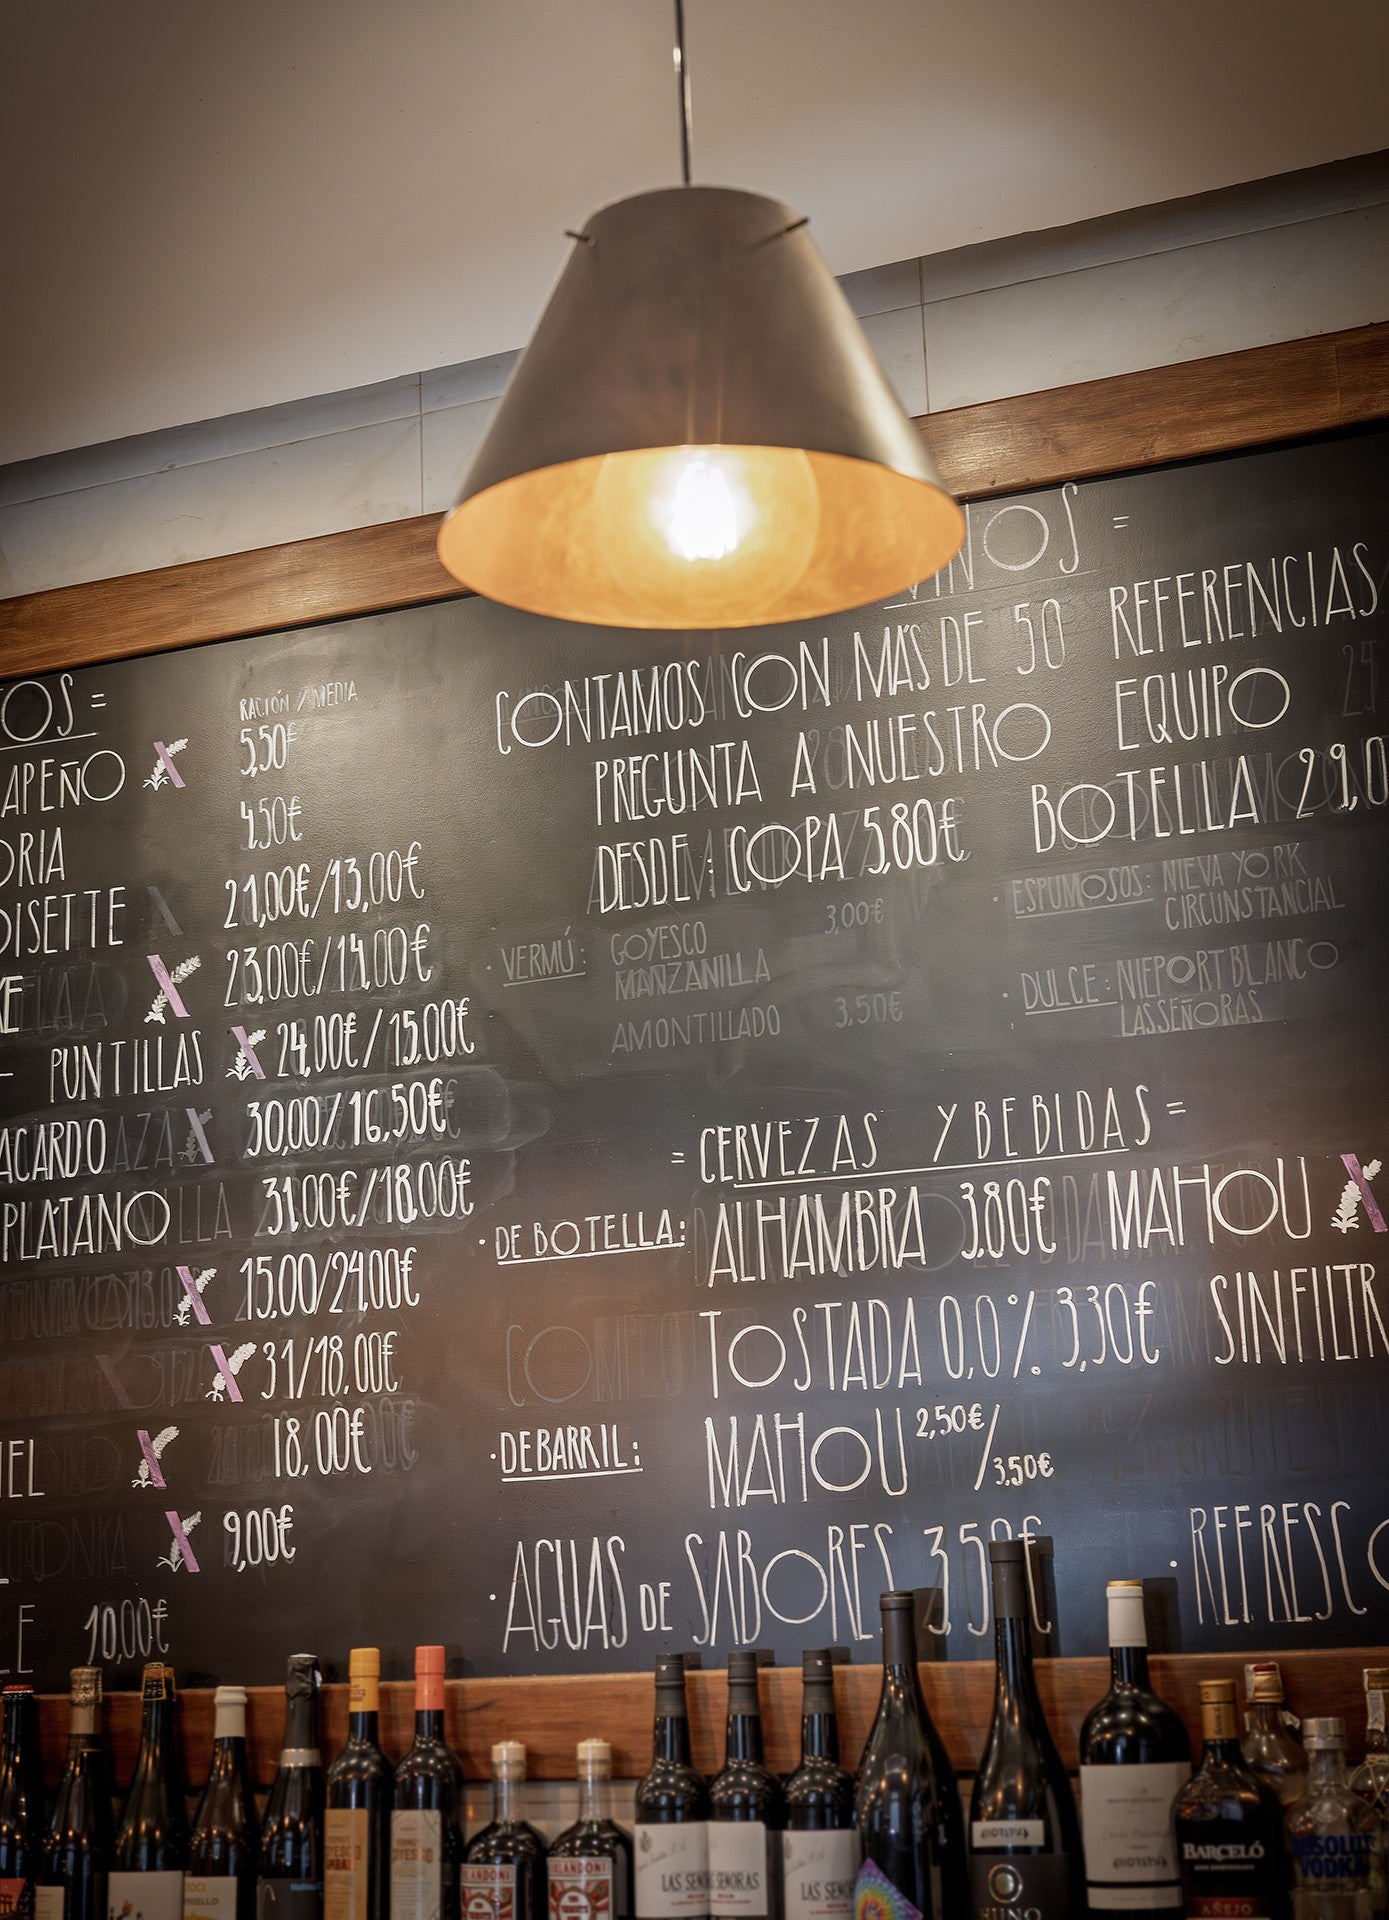 RACIÓN / MEDIA
5,50€
4,50€
21,00€/13,00€
23,00€/14,00€
PUNTILLAS 24,00€/15,00€
30,00/16,50€
PLÁTANO 31,00€/18,00€
15,00/24,00€
31/18,00€
18,00€
9,00€
10,00€
VINOS =
CONTAMOS CON MÁS DE 50 REFERENCIAS
PREGUNTA A NUESTRO EQUIPO
DESDE: COPA 5,80€ BOTELLA 29,0
· VERMÚ: GOYESCO 3,00€
MANZANILLA
AMONTILLADO 3,50€
· ESPUMOSOS: NIEVA YORK
CIRCUNSTANCIAL
· DULCE: NIEPORT BLANCO
LAS SEÑORAS
= CERVEZAS Y BEBIDAS =
· DE BOTELLA: ALHAMBRA 3,80€ MAHOU
TOSTADA 0,0% 3,30€ SIN FILTR
· DE BARRIL: MAHOU 2,50€/3,50€
· AGUAS DE SABORES 3,50€ · REFRESCO
LAS SEÑORAS
BARCELÓ
AÑEJO
ABSOLUT
VODKA